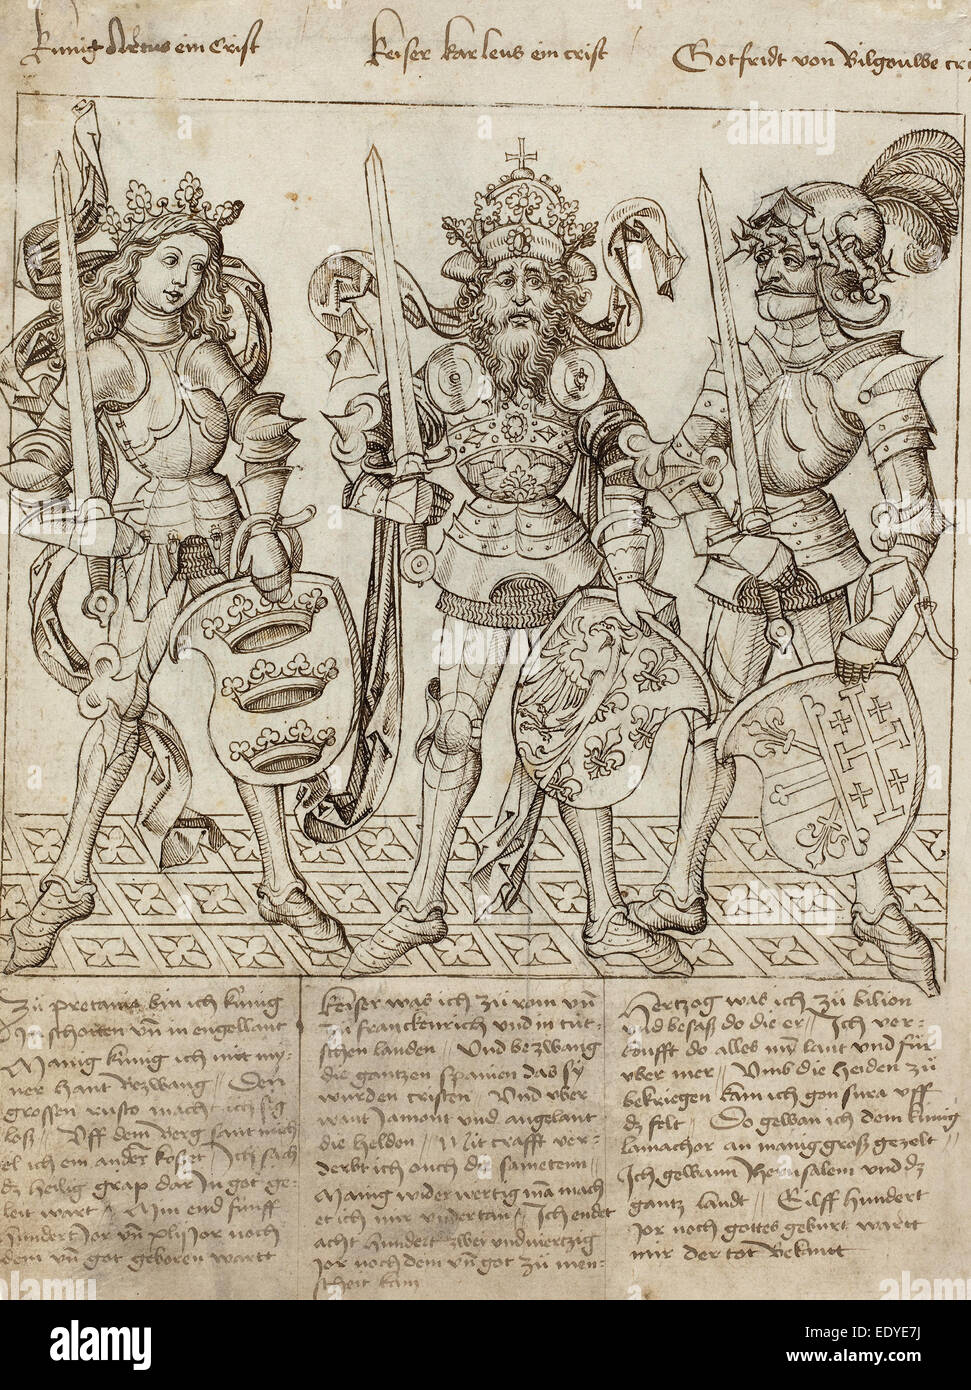 Kunig Artus ein Crist
Keiser karleus ein crist
Gotfridt von Bilgouwe cri
Zu Pretania bin ich kunig
In schotten vnd in engellant
Manig kunig ich mit my-
ner hant Bezwang // Den
grossen rusto macht ich sig
loß // Vff dem Berg sant mich-
el ich ein ander kostet / Ich sach
dz heilig grap dar In got ge-
leit wart / Min end funff
hundert Jor vnd Jor noch
dem vnd got geboren wartt
Keiser was ich zu rom vnd
In franckenrich vnd in tut-
schen landen // Vnd bezwang
die gantzen spanien das sy
wurden cristen // Vnd vber
want Jamont vnd angelant
die helden // Mit crafft ver-
derbt ich ouch die //
Manig wider wertig man mach
et ich mir vndertan / Ich endet
acht hundert zwei vnd viertzig
Jor noch dem vnd got zu men-
scheit kam
Hertzog was ich zu bilion
vnd besaß do die er // Ich ver-
koufft do alles myn lant vnd fur
vber mer // Vmb die heiden zu
bekriegen kam ich gon sura vff
dz felt // Do gewan ich dem kunig
lamachor an manig groß gezelt //
Ich gewann Jherusalem vnd dz
gantz landt // Eilff hundert
Jor noch gottes geburt wartt
mir der tot Bekant
alamy
a
alamy stock photo
EDYE7J
www.alamy.com